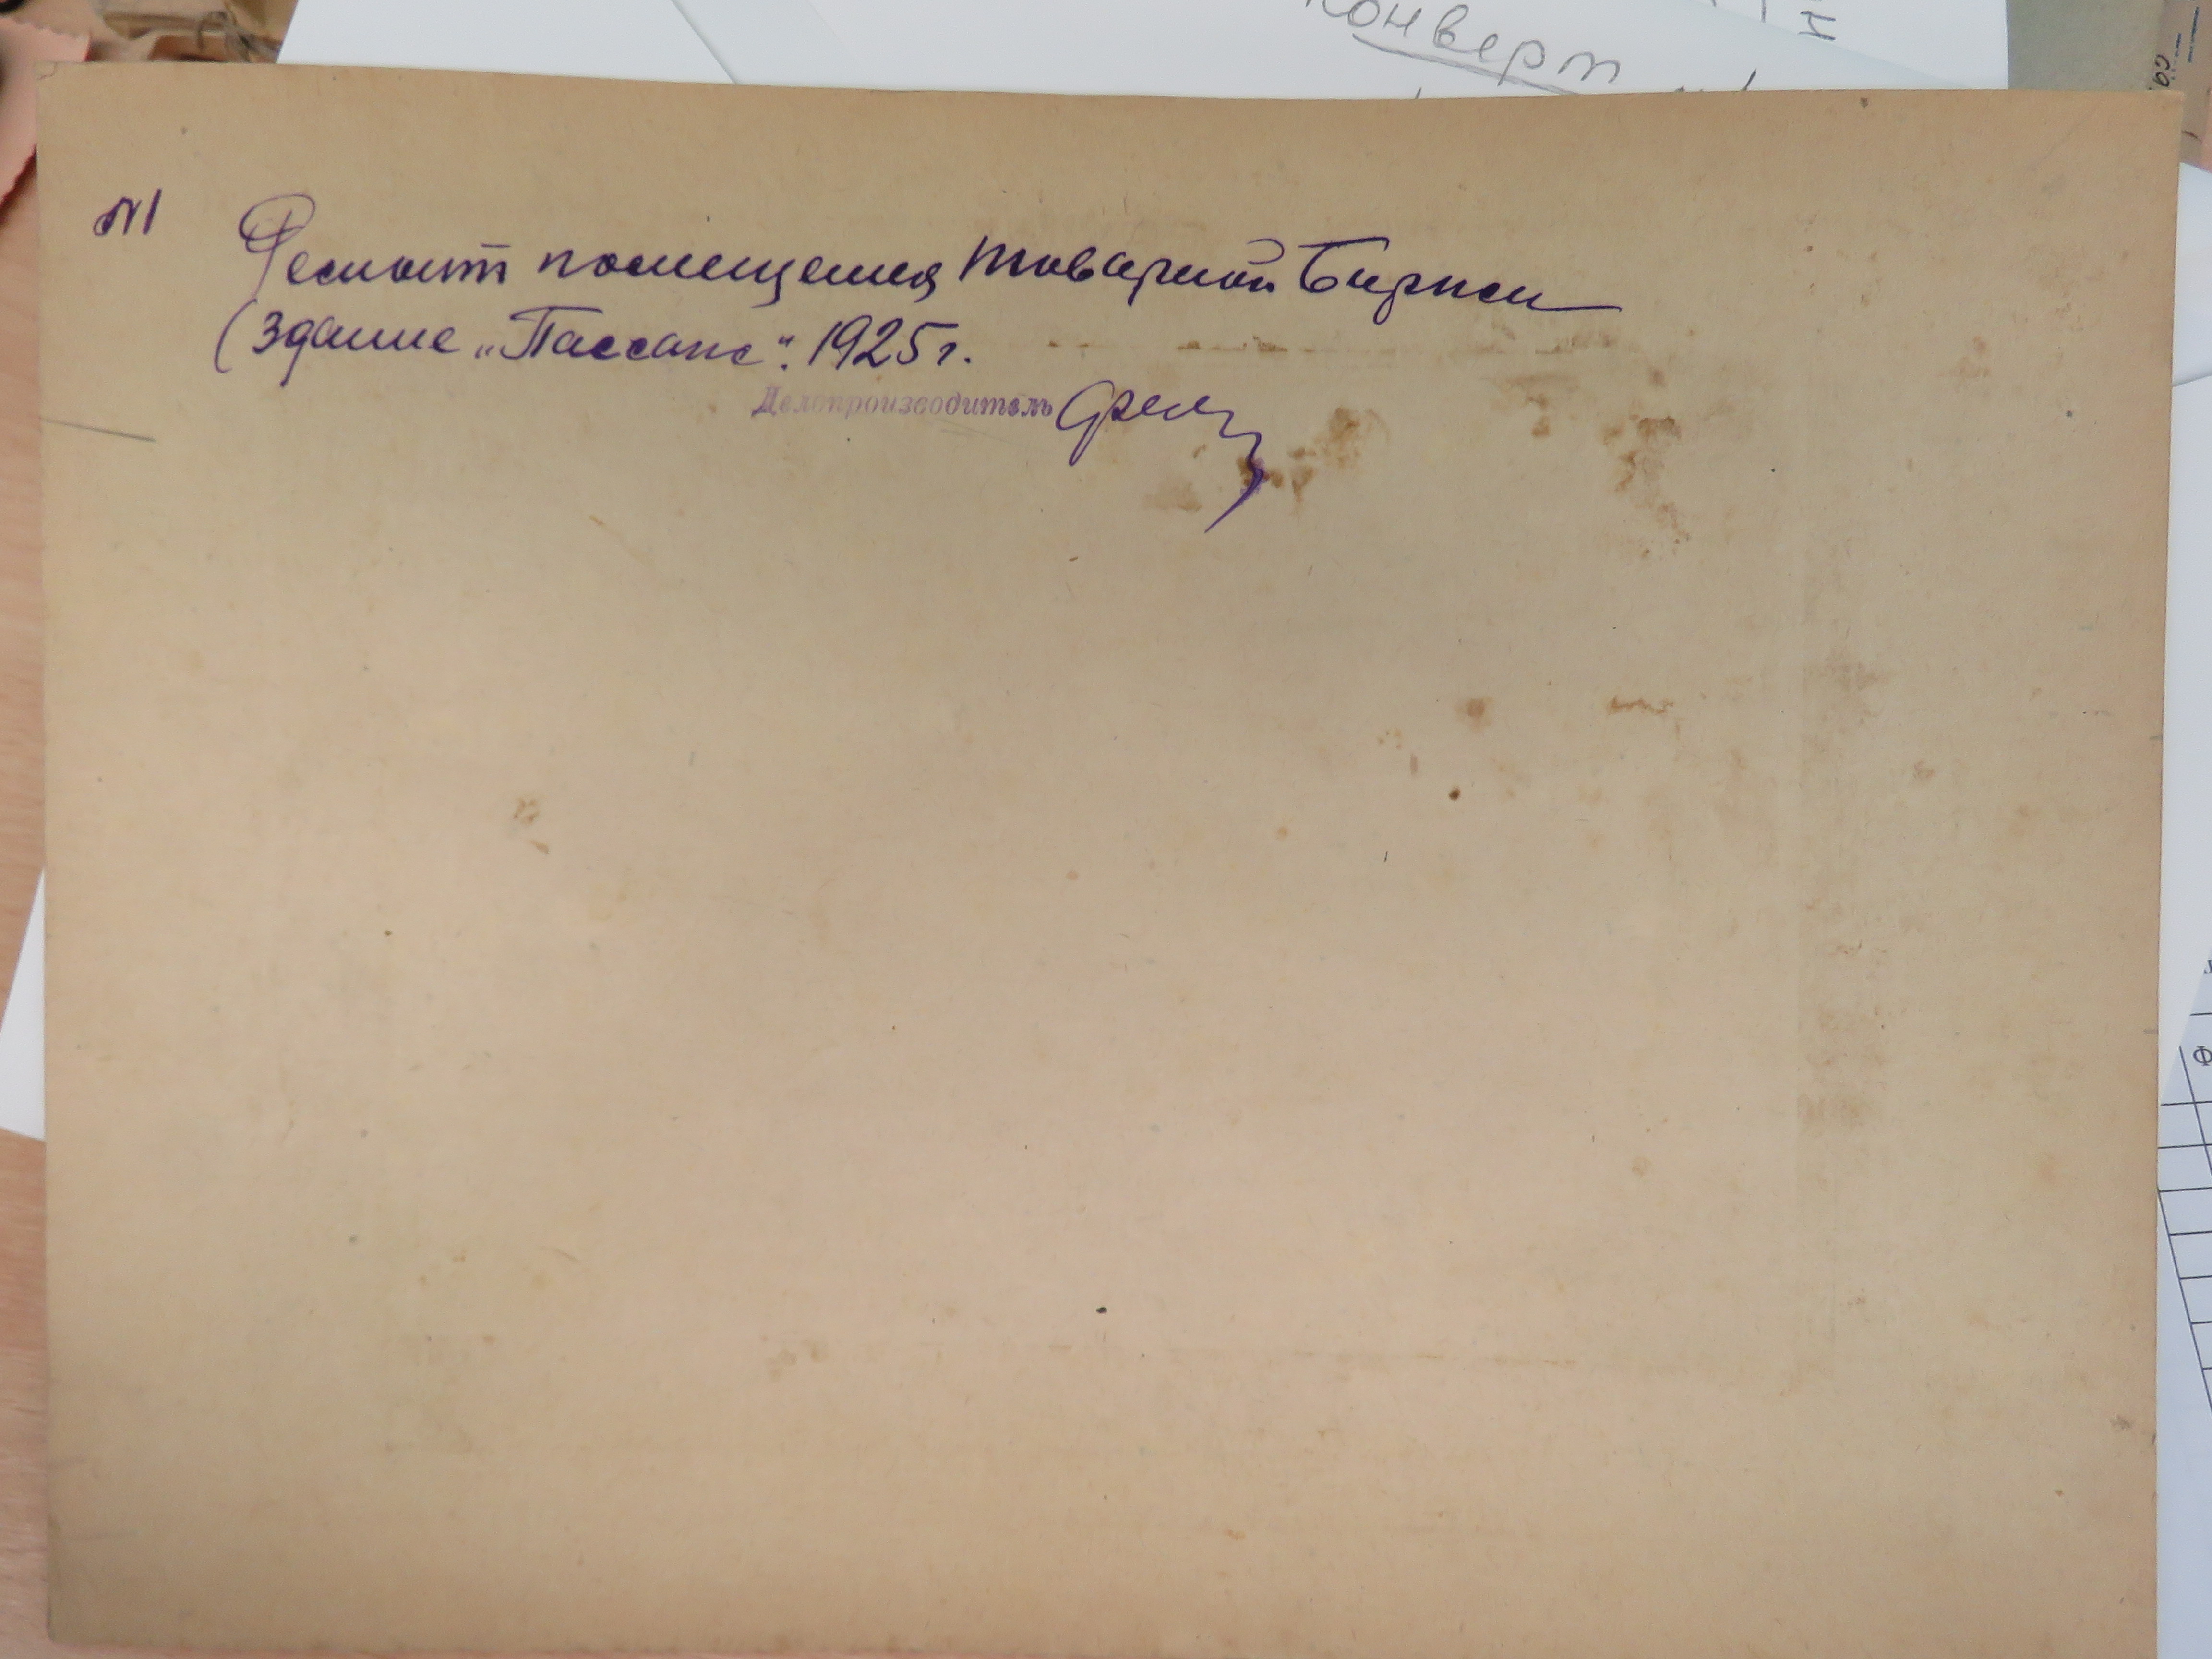 конверт
№1 Ремонт помещения Товарной Биржи
(Здание „Пассаж“. 1925 г.
Делопроизводитель